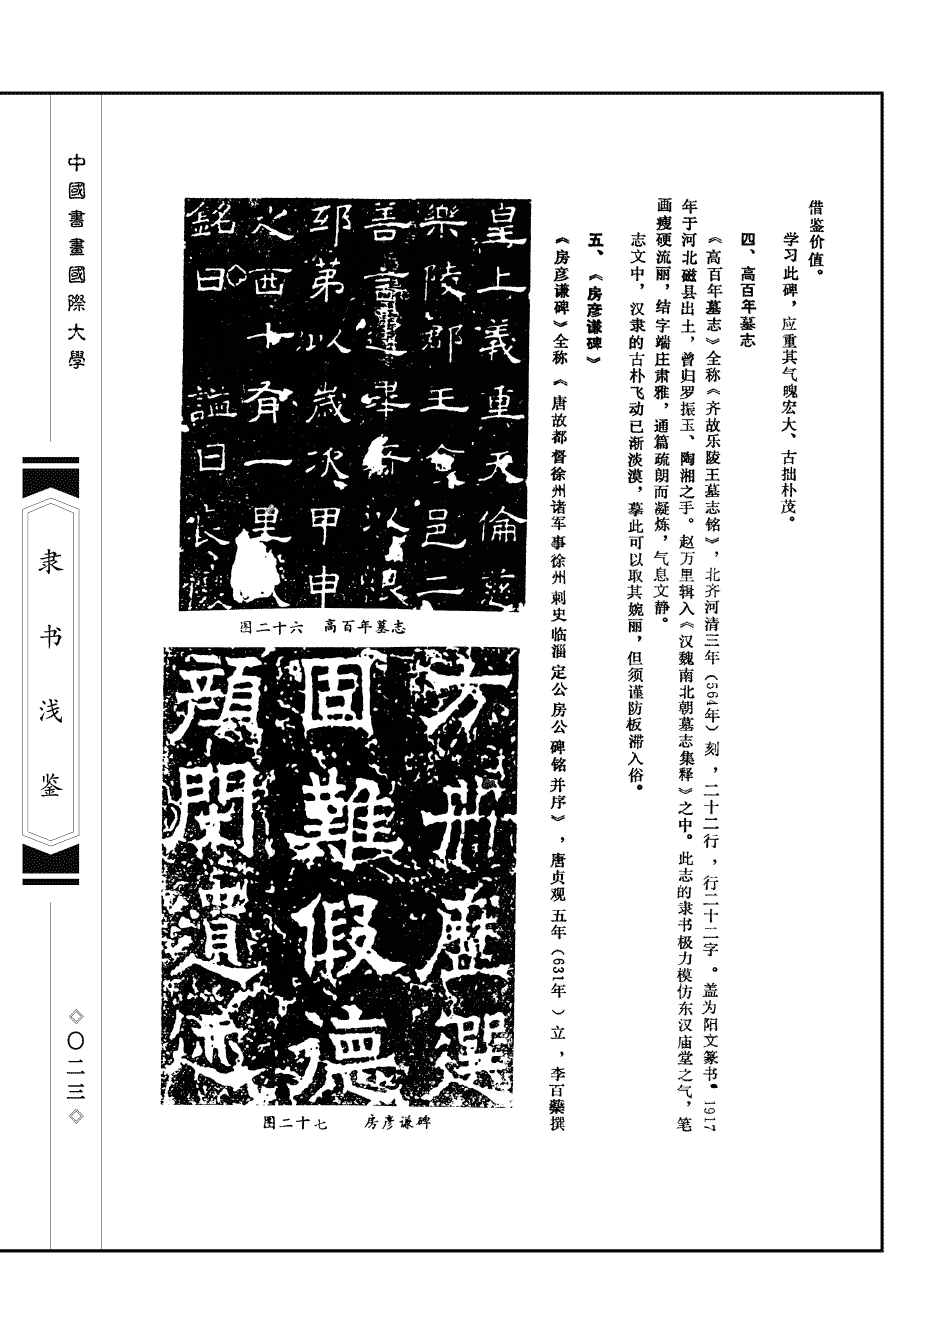 借鉴价值。
学习此碑，应重其气魄宏大、古拙朴茂。
四、高百年墓志
《高百年墓志》全称《齐故乐陵王墓志铭》，北齐河清三年（564年）刻，二十二行，行二十二字。盖为阳文篆书。1917
年于河北磁县出土，曾归罗振玉、陶湘之手。赵万里辑入《汉魏南北朝墓志集释》之中。此志的隶书极力模仿东汉庙堂之气，笔
画瘦硬流丽，结字端庄肃雅，通篇疏朗而凝炼，气息文静。
志文中，汉隶的古朴飞动已渐淡漠，摹此可以取其婉丽，但须谨防板滞入俗。
五、《房彦谦碑》
《房彦谦碑》全称《唐故都督徐州诸军事徐州刺史临淄定公房公碑铭并序》，唐贞观五年（631年）立，李百藥撰
皇上義重天倫
樂陵郡王食邑二
善
邳第以歲次甲申
之酉十有一里
銘曰 謚曰
图二十六 高百年墓志
方册歷選
固難假德
顏閔遺
图二十七 房彦谦碑
中國書畫國際大學
隶书浅鉴
◇〇二三◇